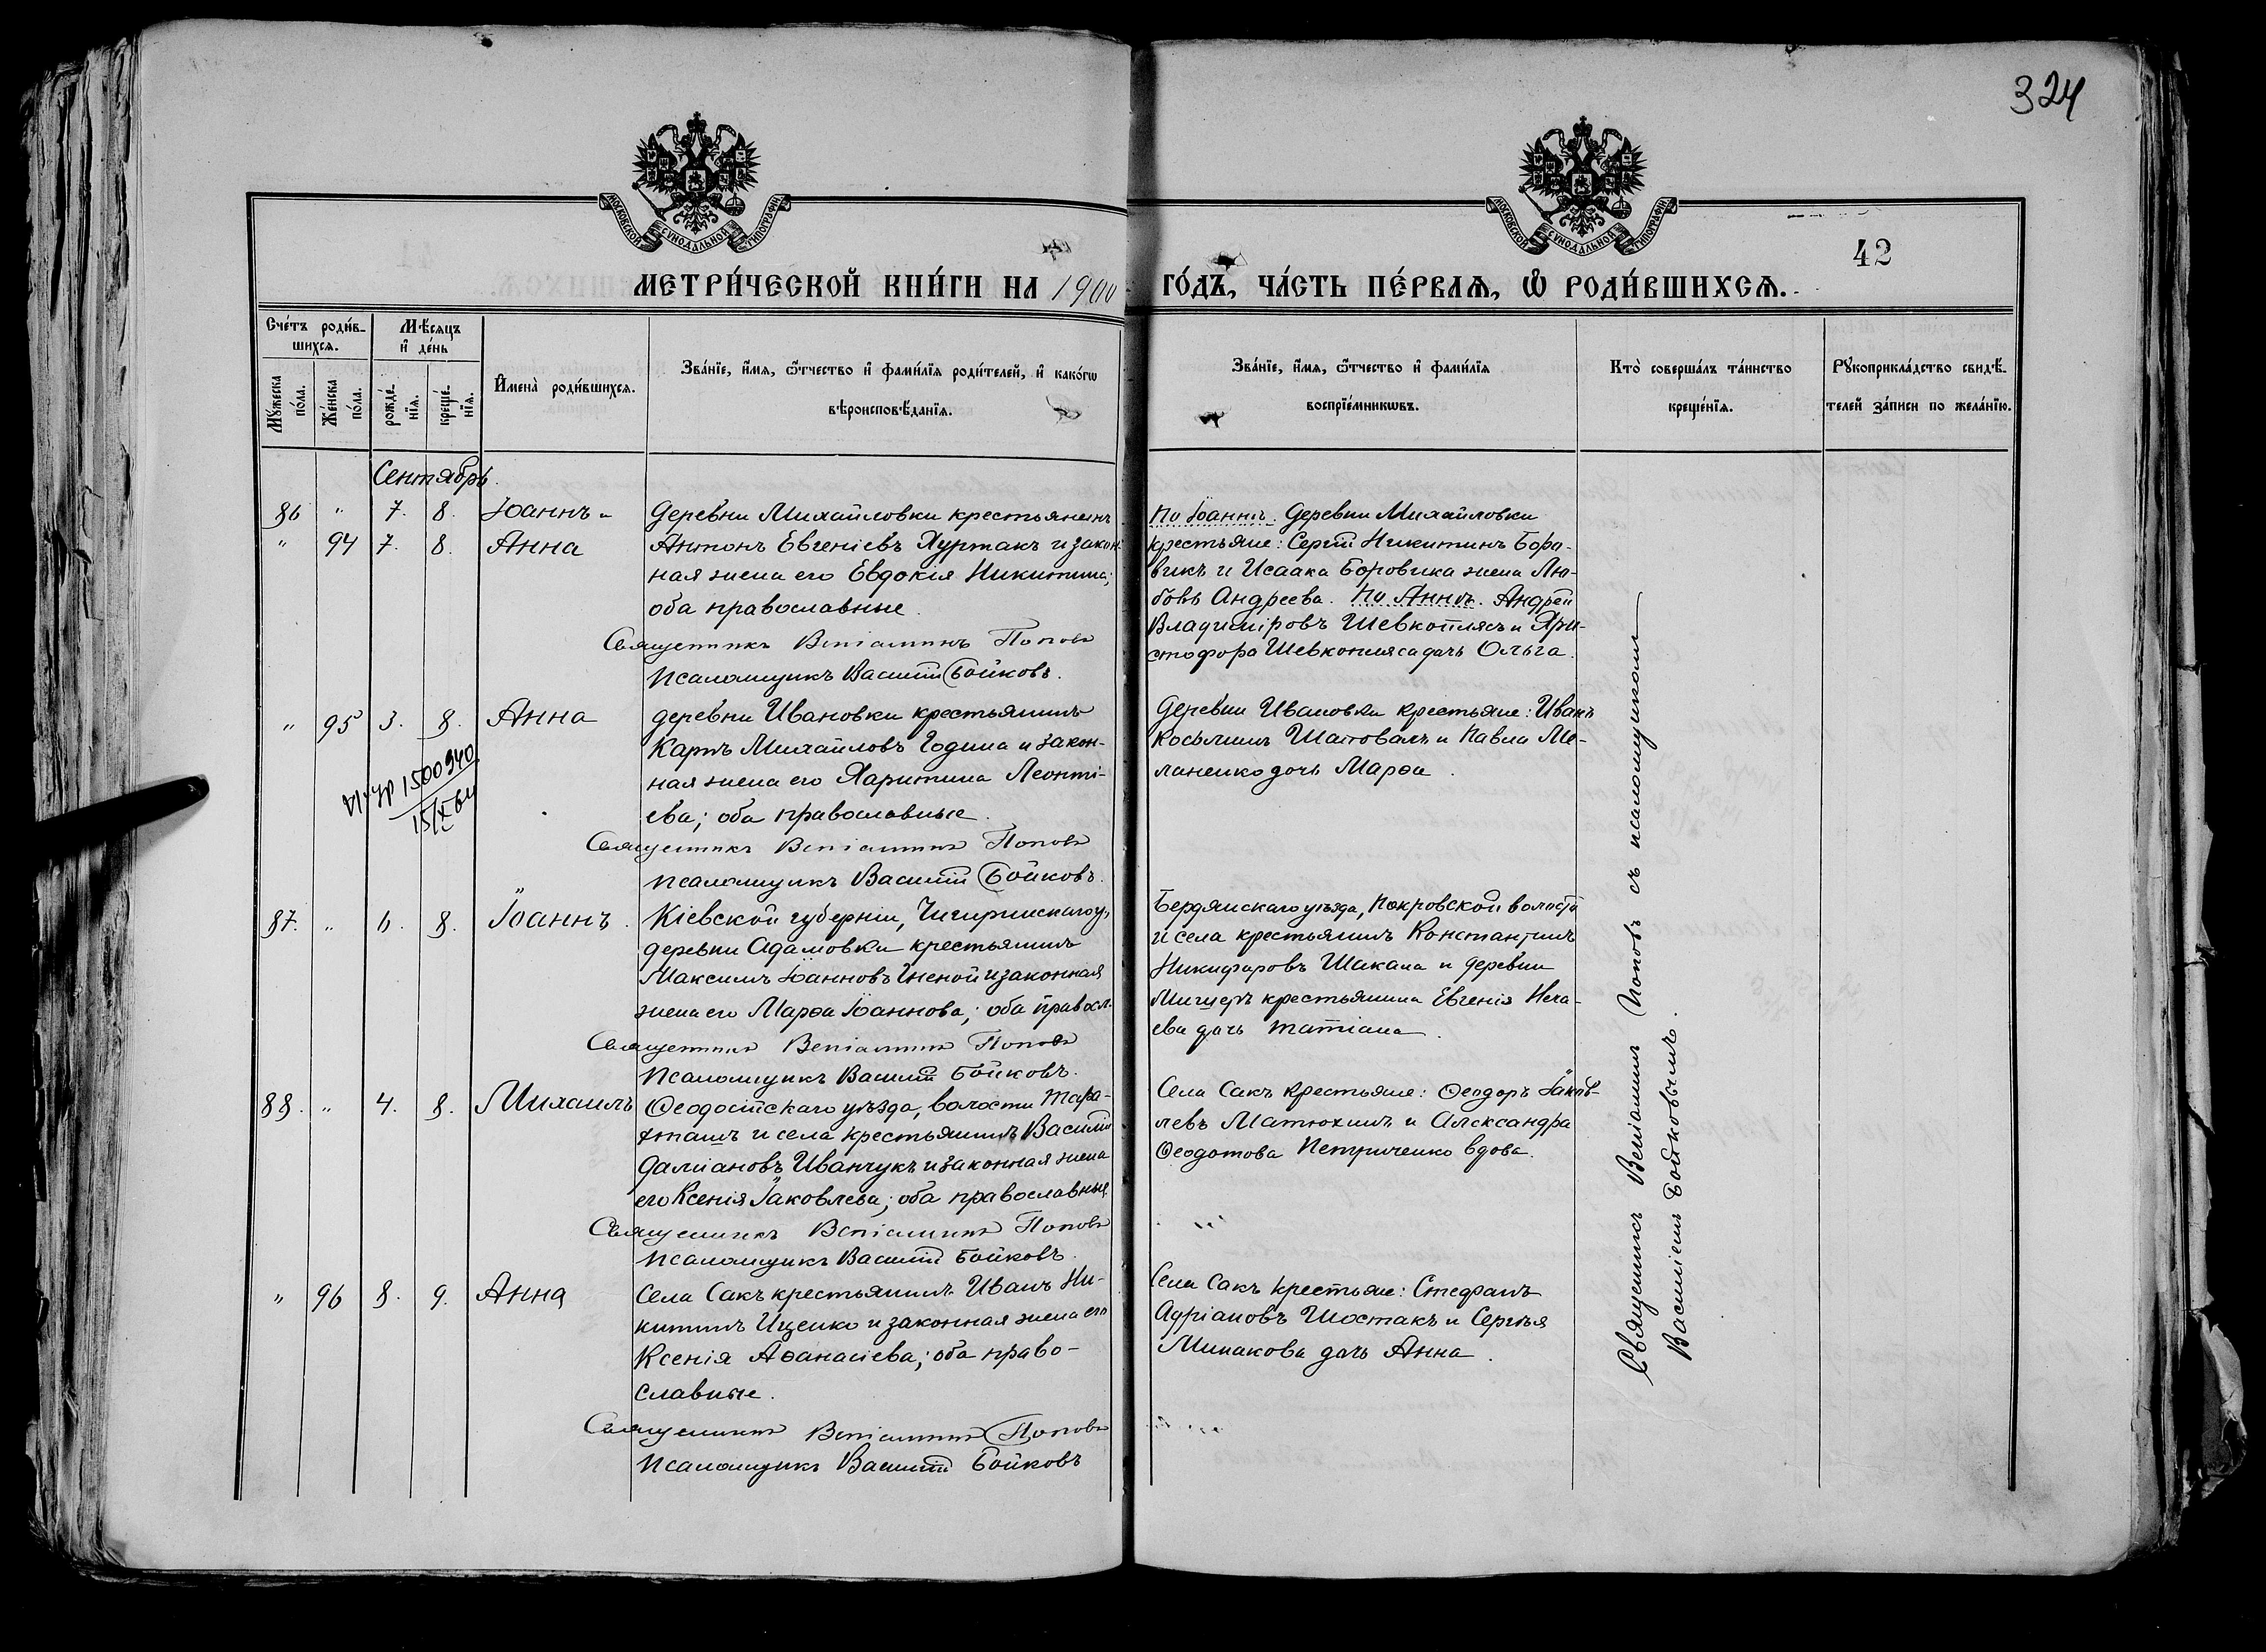 324
МОСКОВСКОЙ СѴНОДАЛЬНОЙ ТИПОГРАФІИ
МОСКОВСКОЙ СѴНОДАЛЬНОЙ ТИПОГРАФІИ
42
МЕТРИ́ЧЕСКОЙ КНИ́ГИ НА 1900
ГО́ДЪ, ЧА́СТЬ ПЕ́РВАѦ, Ѿ РОДИ́ВШИХСѦ.
Сче́тъ роди́в-
шихсѧ.
Мѣсѧцъ
и҆ де́нь
Мꙋжеска
по́ла.
Же́нска
по́ла.
рожде́-
нїѧ.
креще́-
нїѧ.
И҆мена̀ роди́вшихсѧ.
Зва́нїе, и҆́мѧ, ѻ҆́тчество и҆ фами́лїѧ роди́телей, и҆ како́гѡ
вѣроисповѣ́данїѧ.
Зва́нїе, и҆́мѧ, ѻ҆́тчество и҆ фами́лїѧ
воспрїе́мникѡвъ.
Кто̀ соверша́лъ та́инство
креще́нїѧ.
Рꙋкоприкла́дство свидѣ́-
телей за́писи по жела́нїю.
Сентябрь.
86 " 7. 8. Іоаннъ и
" 94 7. 8. Анна
деревни Михайловки крестьянинъ
Антонъ Евгеніевъ Хуртакъ и закон-
ная жена его Евдокія Никитина;
оба православные.
Священникъ Веніаминъ Поповъ
Псаломщикъ Василій Бойковъ.
По Іоаннѣ. Деревни Михайловки
крестьяне: Сергій Никитинъ Бора-
викъ и Исаака Боровика жена Лю-
бовь Андреева. По Аннѣ. Андрей
Владиміровъ Шевкоплясъ и Хри-
стофора Шевкопляса дочь Ольга.
" 95 3. 8. Анна
VI-УР 1500940
деревни Ивановки крестьянинъ
Карпъ Михайловъ Година и закон-
ная жена его Харитина Леонті-
ева; оба православные.
Священникъ Веніаминъ Поповъ
Псаломщикъ Василій Бойковъ.
Деревни Ивановки крестьяне: Иванъ
Косьминъ Шаповалъ и Павла Ме-
ланенко дочь Марѳа.
87. " 6. 8. Іоаннъ.
Кіевской губерніи, Чигиринскаго у,
деревни Адамовки крестьянинъ
Максимъ Іоанновъ Гненой и законная
жена его Марѳа Іоаннова; оба правосл.
Священникъ Веніаминъ Поповъ
Псаломщикъ Василій Бойковъ.
Бердянскаго уѣзда, Покровской волости
и села крестьянинъ Константинъ
Никифоровъ Шакала и деревни
крестьянина Евгенія Неча-
ева дочь Татіана.
88. " 4. 8. Михаилъ
Ѳеодосійскаго уѣзда, волости Тара-
кташъ и села крестьянинъ Василій
Даміановъ Иванчукъ и законная жена
его Ксенія Іаковлева; оба православные
Священникъ Веніаминъ Поповъ
Псаломщикъ Василій Бойковъ.
Села Сакъ крестьяне: Ѳеодоръ Іаков-
левъ Матюхинъ и Александра
Ѳеодотова Петриченко вдова.
" 96 8. 9. Анна
Села Сакъ крестьянинъ Иванъ Ни-
китинъ Ищенко и законная жена его
Ксенія Аѳанасіева; оба право-
славные.
Священникъ Веніаминъ Поповъ
Псаломщикъ Василій Бойковъ
Села Сакъ крестьяне: Стефанъ
Адріановъ Шостакъ и Сергѣя
Минакова дочь Анна.
Священникъ Веніаминъ Поповъ съ псаломщикомъ
Василіемъ Бойковымъ.